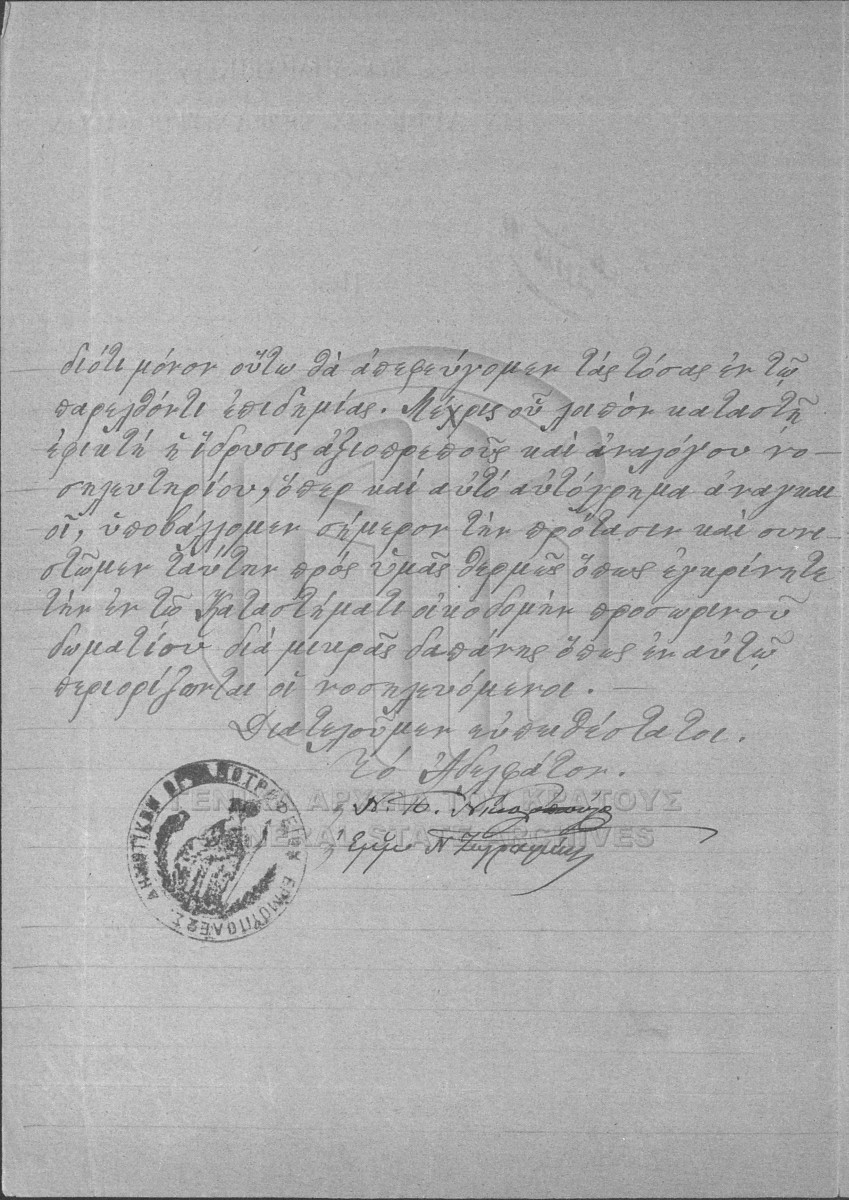 διότι μόνον οὕτω θὰ ἀπεφεύγομεν τάς τόσας ἐν τῷ
παρελθόντι ἐπιδημίας. Μέχρις οὗ λοιπὸν καταστῇ
ἐφικτή ἡ ἵδρυσις ἀξιοπρεποῦς καὶ ἀναλόγου νο-
σηλευτηρίου, ὅπερ καὶ αὐτό αὐτόχρημα ἀναγκαι
οῖ, ὑποβάλλομεν σήμερον τὴν πρότασιν καὶ συνι
στῶμεν ταύτην πρός ὑμᾶς θερμῶς ὅπως ἐγκρίνητε
τὴν ἐν τῷ Καταστήματι οἰκοδομὴν προσωρινοῦ
δωματίου διά μικρᾶς δαπάνης ὅπως ἐν αὐτῷ
περιορίζωνται οἱ νοσηλευόμενοι. —
Διατελοῦμεν εὐπειθέστατοι.
Τό Ἀδελφᾶτον.
ΓΕΝΙΚΑ ΑΡΧΕΙΑ ΤΟΥ ΚΡΑΤΟΥΣ
GENERAL STATE ARCHIVES
ΔΗΜΟΤΙΚΟΝ ΒΡΕΦΟΤΡΟΦΕΙΟΝ ΕΡΜΟΥΠΟΛΕΩΣ